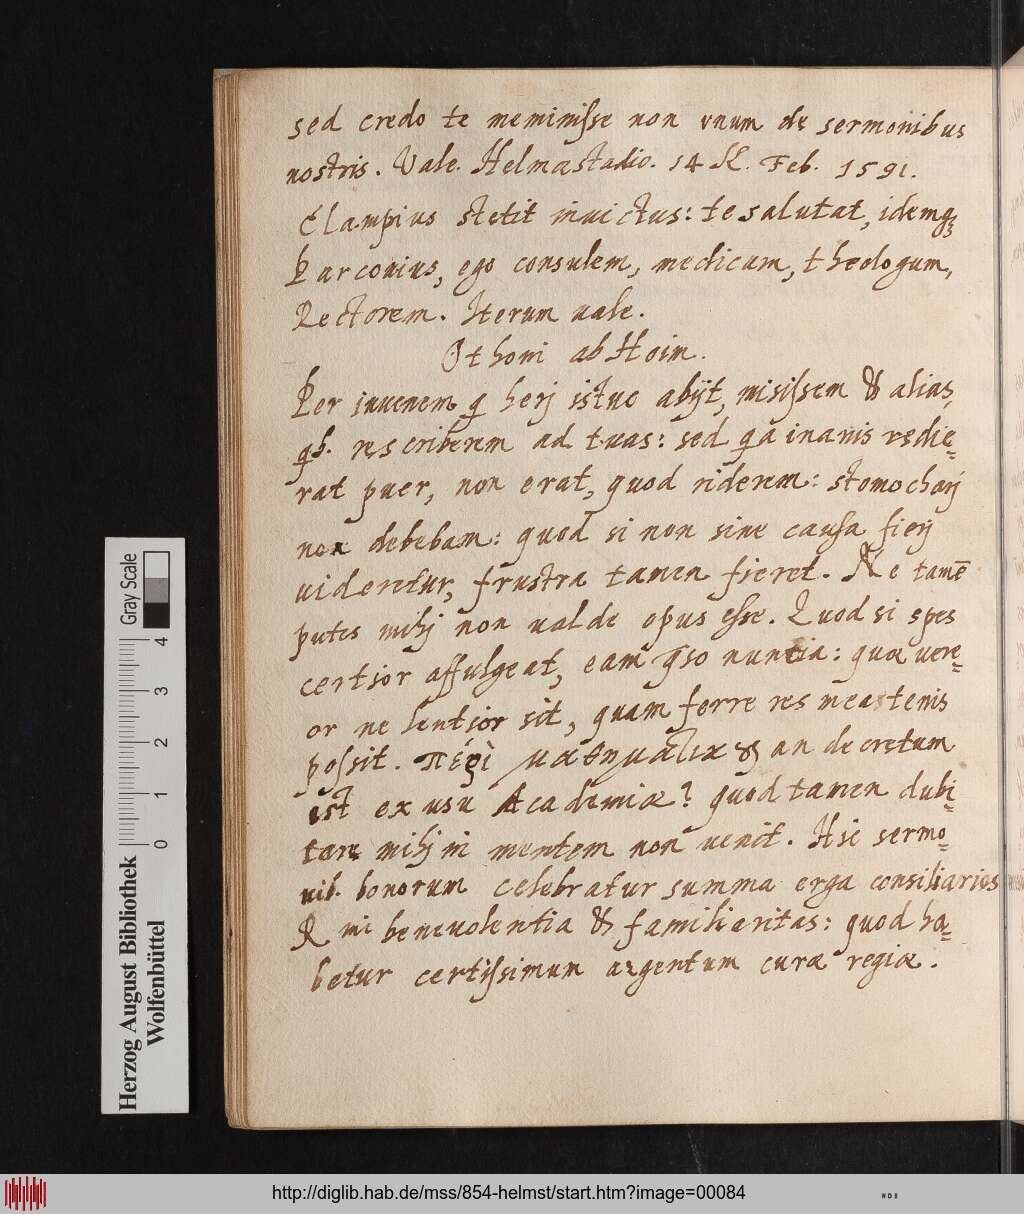 sed credo te meminisse non vnum de sermonibus
nostris. Vale. Helmastadio. 14 K. Feb. 1591.
Clampius stetit inuictus: te salutat, idemq;
Parconius, ego consulem, medicum, theologum,
Rectorem. Iterum uale.
Othoni ab Hoim.
Per iuuenem q herj istuc abijt, misissem & alias,
qb. rescriberem ad tuas: sed qa inanis redie-
rat puer, non erat, quod riderem: stomocharj
non debebam: quod si non sine causa fierj
uideretur, frustra tamen fieret. Ne tamē
putes mihj non ualde opus esse. Quod si spes
certior affulgeat, eam qso nuntia: quæ vere-
or ne lentior sit, quam ferre res meæ tenis
possit. πέρὶ & an decretum
est ex usu Academiæ? quod tamen dubi-
tare mihj in mentem non uenit. Hic sermo-
nib. bonorum celebratur summa erga consiliarios
R mi beneuolentia & familiaritas: quod ha-
betur certissimum argentum curæ regiæ.
Gray Scale
0 1 2 3 4
Herzog August Bibliothek
Wolfenbüttel
http://diglib.hab.de/mss/854-helmst/start.htm?image=00084